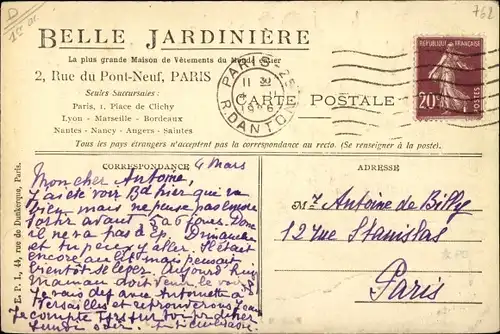 BELLE JARDINIÈRE
La plus grande Maison de Vêtements du Monde entier
2, Rue du Pont-Neuf, PARIS
Seules Succursales :
Paris, 1. Place de Clichy
Lyon - Marseille - Bordeaux
Nantes - Nancy - Angers - Saintes
PARIS
R DANTON
CARTE POSTALE
REPUBLIQUE FRANÇAISE
20c
POSTES
Tous les pays étrangers n'acceptent pas la correspondance au recto. (Se renseigner à la poste).
CORRESPONDANCE
4 Mars
Mon cher Antoine,
J'ai été voir Bd hier qui va
bien mais ne pense pas encore
avant 5 a 6 jours. Donc
il ne va pas Dimanche
et tu peux y aller. Il était
encore au lit mais pensait
bientôt se lever. Aujourd'hui
maman doit venir le voir
Je vais avec Antoinette a
Versailles et
Je compte sur toi pr dîner
lundi soir.
ADRESSE
Mr Antoine de Billy
12 rue Stanislas
Paris
E. P. I., 44, rue de Dunkerque, Paris.